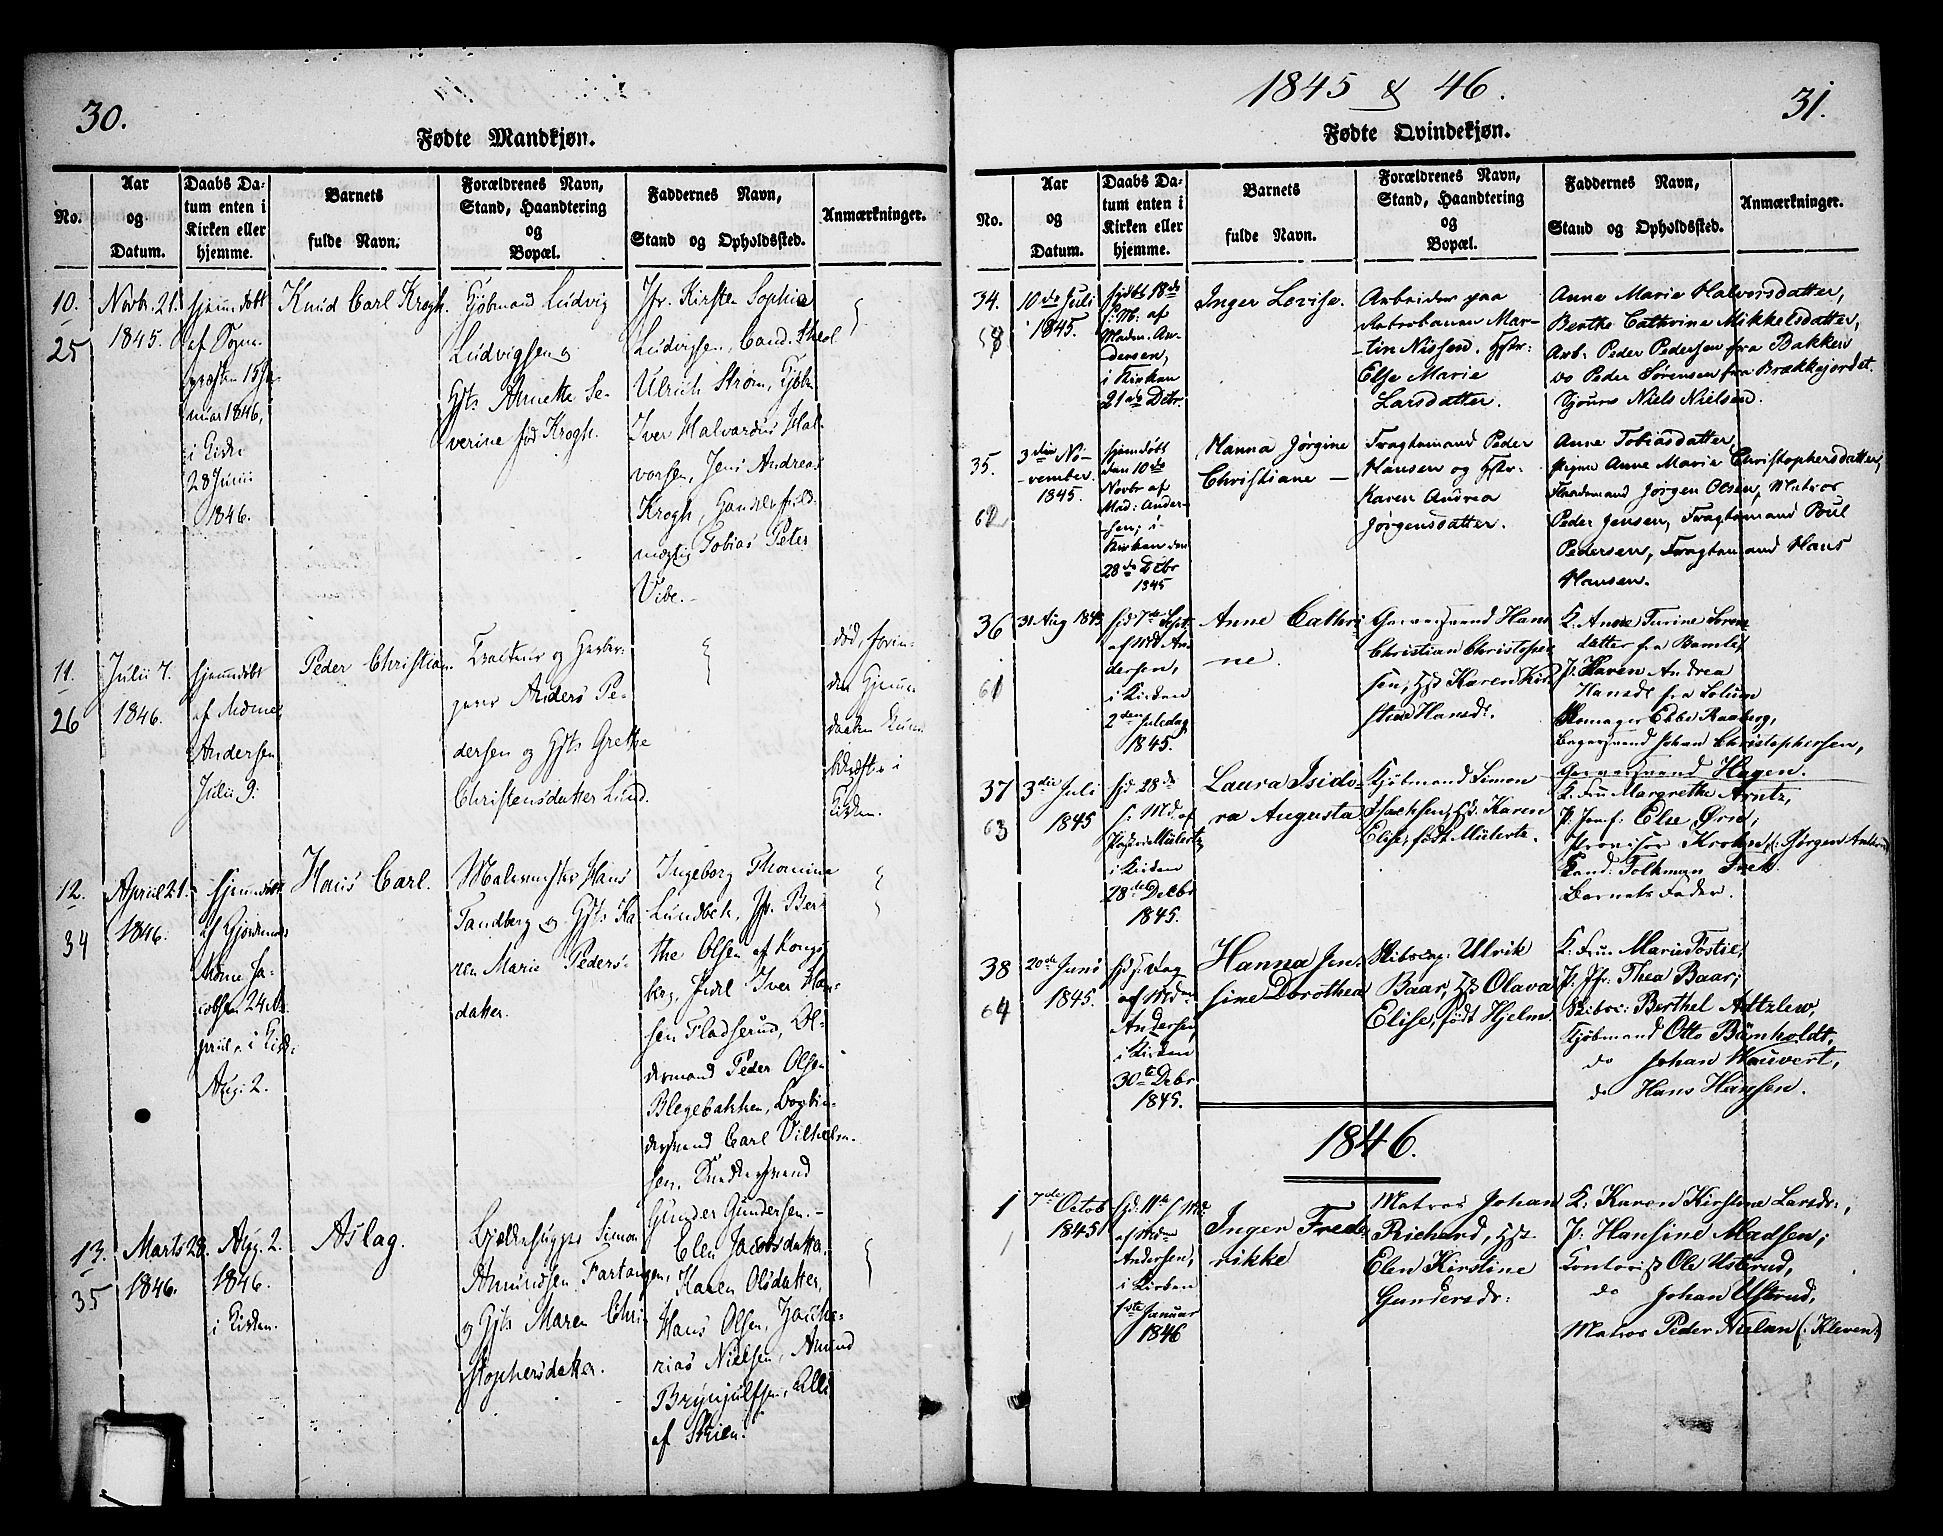 30.
Fødte Mandkjøn.
No.
Aar
og
Datum.
Daabs Da-
tum enten i
Kirken eller
hjemme.
Barnets
fulde Navn.
Forældrenes Navn,
Stand, Haandtering
og
Bopæl.
Faddernes Navn,
Stand og Opholdssted.
Anmærkninger.
10.
25
Novbr. 21.
1845.
hjemmedøbt
af Sogne-
præsten 15 Ja-
nuar 1846,
i Kirken
28 Junii
1846.
Knud Carl Krogh.
Kjøbmand Ludvig
Ludvigsen og
Hst. Annette Se-
verine fød Krogh.
Jfr. Kirsten Sophie
Ludvigsen, Cand. theol
Ulrich Strøm, Kjøbm
Iver Halvardus Hal-
vorsen, Jens Andreas
Krogh, Handelsfuld-
mægtig Tobias Peter
Vibe.
11.
26
Julii 7.
1846.
hjemmedøbt
af Mdme
Andersen
Julii 9.
Peder Christian.
Anders Pe-
dersen og Hst. Grethe
Christensdatter Lund.
død, forin-
den Hjemme-
daaben kund
bekræftes i
Kirken.
12.
34
April 21.
1846.
hjemmedøbt
af Gjordemoder
Mdme Ja-
cobsen 24 A-
pril, i Kirk.
Aug. 2.
Hans Carl.
Malermester Hans
Tandberg og Hst. Ka-
ren Marie Peders-
datter.
Ingeborg Thomine
Lundbek, Jfr. Ber-
the Olsen af Kongs-
berg, Iver Han-
sen Fladserud, Ol-
dermand Peder Olsen
Blegebakken, Bogbin-
dersvend Carl Vilhelm-
sen, Snedkersvend
Gunder Gundersen.
13.
35
Marts 28.
1846.
Aug. 2.
1846.
i Kirken.
Aslag.
Bjælkehugger Simon
Amundsen Fartangen,
og Hst. Maren Chri-
stophersdatter.
Elen Jacobsdatter,
Karen Olsdatter,
Hans Olsen, Zacha-
rias Nielsen, Amund
Brynjulfsen, Alle
af Skien.
1845 & 46.
31.
Fødte Qvindekjøn.
No.
Aar
og
Datum.
Daabs Da-
tum enten i
Kirken eller
hjemme.
Barnets
fulde Navn.
Forældrenes Navn,
Stand, Haandtering
og
Bopæl.
Faddernes Navn,
Stand og Opholdssted.
Anmærkninger.
34.
58
10de Juli
1845.
hjdbt. 18de
s. M. af
Madm. An-
dersen,
i Kirken
21de Dcbr.
Inger Lovise.
Arbeider paa
Rebrobanen Mar-
tin Nissen. Hstr.
Else Marie
Larsdatter.
Anne Marie Halvorsdatter,
Berthe Cathrine Mikkelsdatter,
Arb. Peder Pedersen fra Bakken
do Peder Sørensen fra Brækkejordet.
Sjours Niels Nielsen.
35.
62
3die No-
vember.
1845.
hjemdøbt
den 10de
Novbr af
Mad: Ander-
sen; i
Kirken den
28de Dcbr
1845
Hanna Jørgine
Christiane
Fragtemand Peder
Hansen og Hstr.
Karen Andrea
Jørgensdatter.
Anne Tobiasdatter,
Pigen Anne Marie Christophersdatter,
Jørgen Olsen, Matros
Peder Jensen, Fragtemand Poul
Pedersen, Fragtemand Hans
Hansen.
36
61
31 Aug 1845
hjd 7de Sept.
af Md An-
dersen,
i Kirken
2den Juledag
1845.
Anne Cathri-
ne.
Garversvend Hans
Christian Christopher-
sen, Hst Karen Kir-
stine Hansdt.
K. Anne Turine Soren
datter fra Bamle,
P. Karen Andrea
Hansdt fra Solum
Skomager Ebbe Raaberg,
Bagersvend Johan Christophersen,
Garversvend Hagen.
37
63
3die Juli
1845
hjd 28de
s: Md. af
Mülertz
i Kirken
28de Decbr
1845.
Laura Isido-
ra Augusta
Kjöbmand Simon
Isachsen, Hst. Karen
Elise, født Mülertz.
K. Fru Margrethe Arntz,
P. Jomf: Else Ørn,
Provisor Krohn, (: Jørgen Anders:)
Kand: Tolkman Treb.
Barnets Fader.
38
64
20de Juni
1845.
hjd s: Dag
af Mdme
Andersen
i Kirken
30te Dcbr
1845.
Hanna Jen-
sine Dorothea
Skibscap. Ulrik
Baar, Hst Olava
Elise, født Hjelm.
K. Fru Marie Tostie,
P. Jfr. Thea Baar,
Skibsc: Berthel Altzlew,
Kjöbmand Otto Bömholdt,
do Johan Wauvert,
do Hans Hansen.
1846.
1
7de Octob
1845
hjd: 11te s Md
af Mdme
Andersen,
i Kirken
1ste Januar
1846
Inger Frede-
rikke
Matros Johan
Richard, Hst.
Elen Kirstine
Gundersdr:
K. Karen Kirstine Larsdr:,
P. Hansine Madsen,
Kontorist Ole Ustrud,
do Johan Ustrud,
Matros Peder Nielsen (: Kleven:)